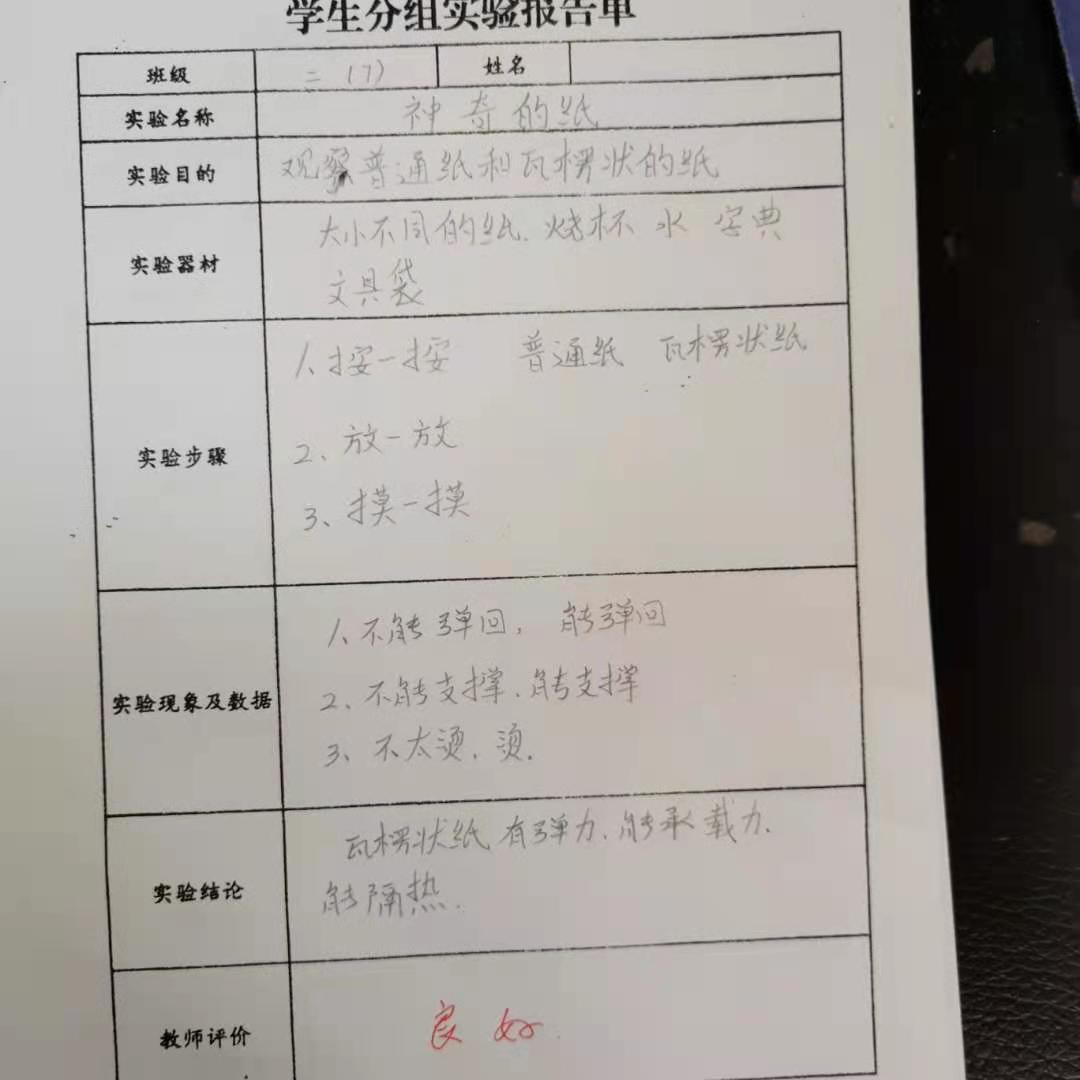 学生分组实验报告单
班级 二（7） 姓名
实验名称 神奇的纸
实验目的 观察普通纸和瓦楞状的纸
实验器材 大小不同的纸、烧杯 水 字典
文具袋
实验步骤 1、按一按 普通纸 瓦楞状纸
2、放一放
3、摸一摸
实验现象及数据 1、不能弹回， 能弹回
2、不能支撑、能支撑
3、不太烫、烫.
实验结论 瓦楞状纸有弹力、能承载力、
能隔热.
教师评价 良好